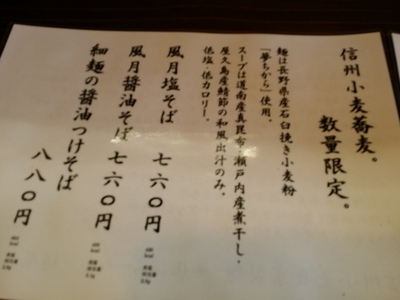 信州小麦蕎麦。
数量限定。
麺は長野県産石臼挽き小麦粉
「夢ちから」使用。
スープは道南産真昆布、瀬戸内産煮干し、
屋久島産鯖節の和風出汁のみ。
低塩・低カロリー。
風月塩そば 七六〇円
風月醤油そば 七六〇円
細麺の醤油つけそば
八八〇円